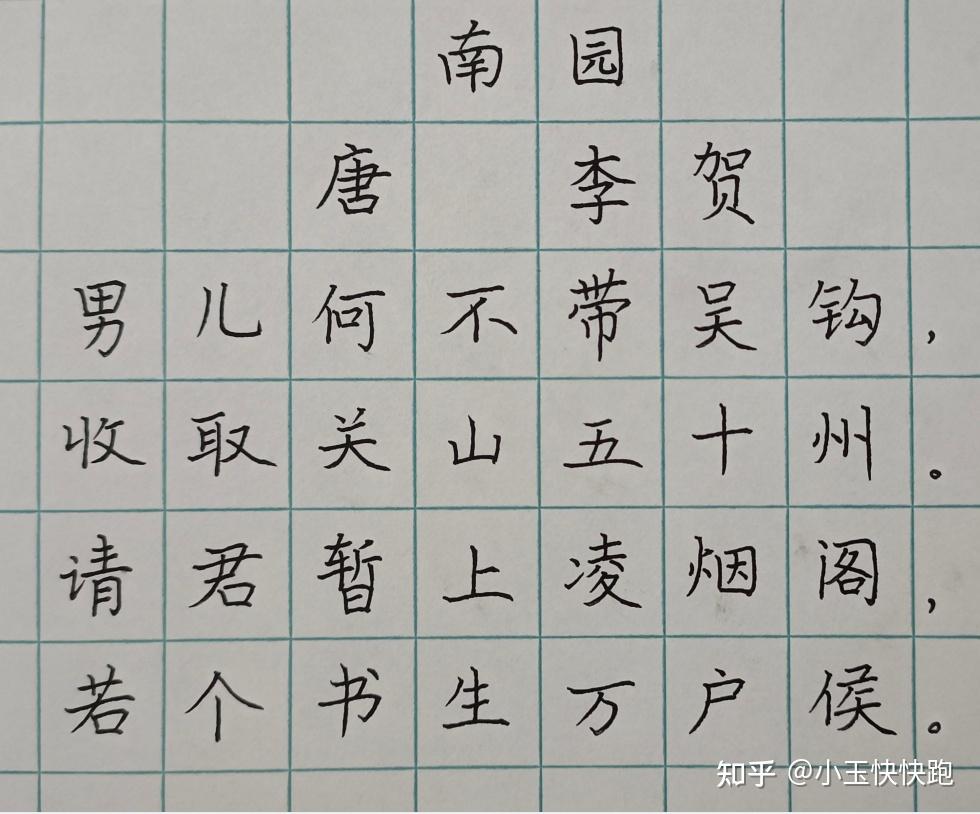 南园
唐 李贺
男儿何不带吴钩，
收取关山五十州。
请君暂上凌烟阁，
若个书生万户侯。
知乎 @小玉快快跑